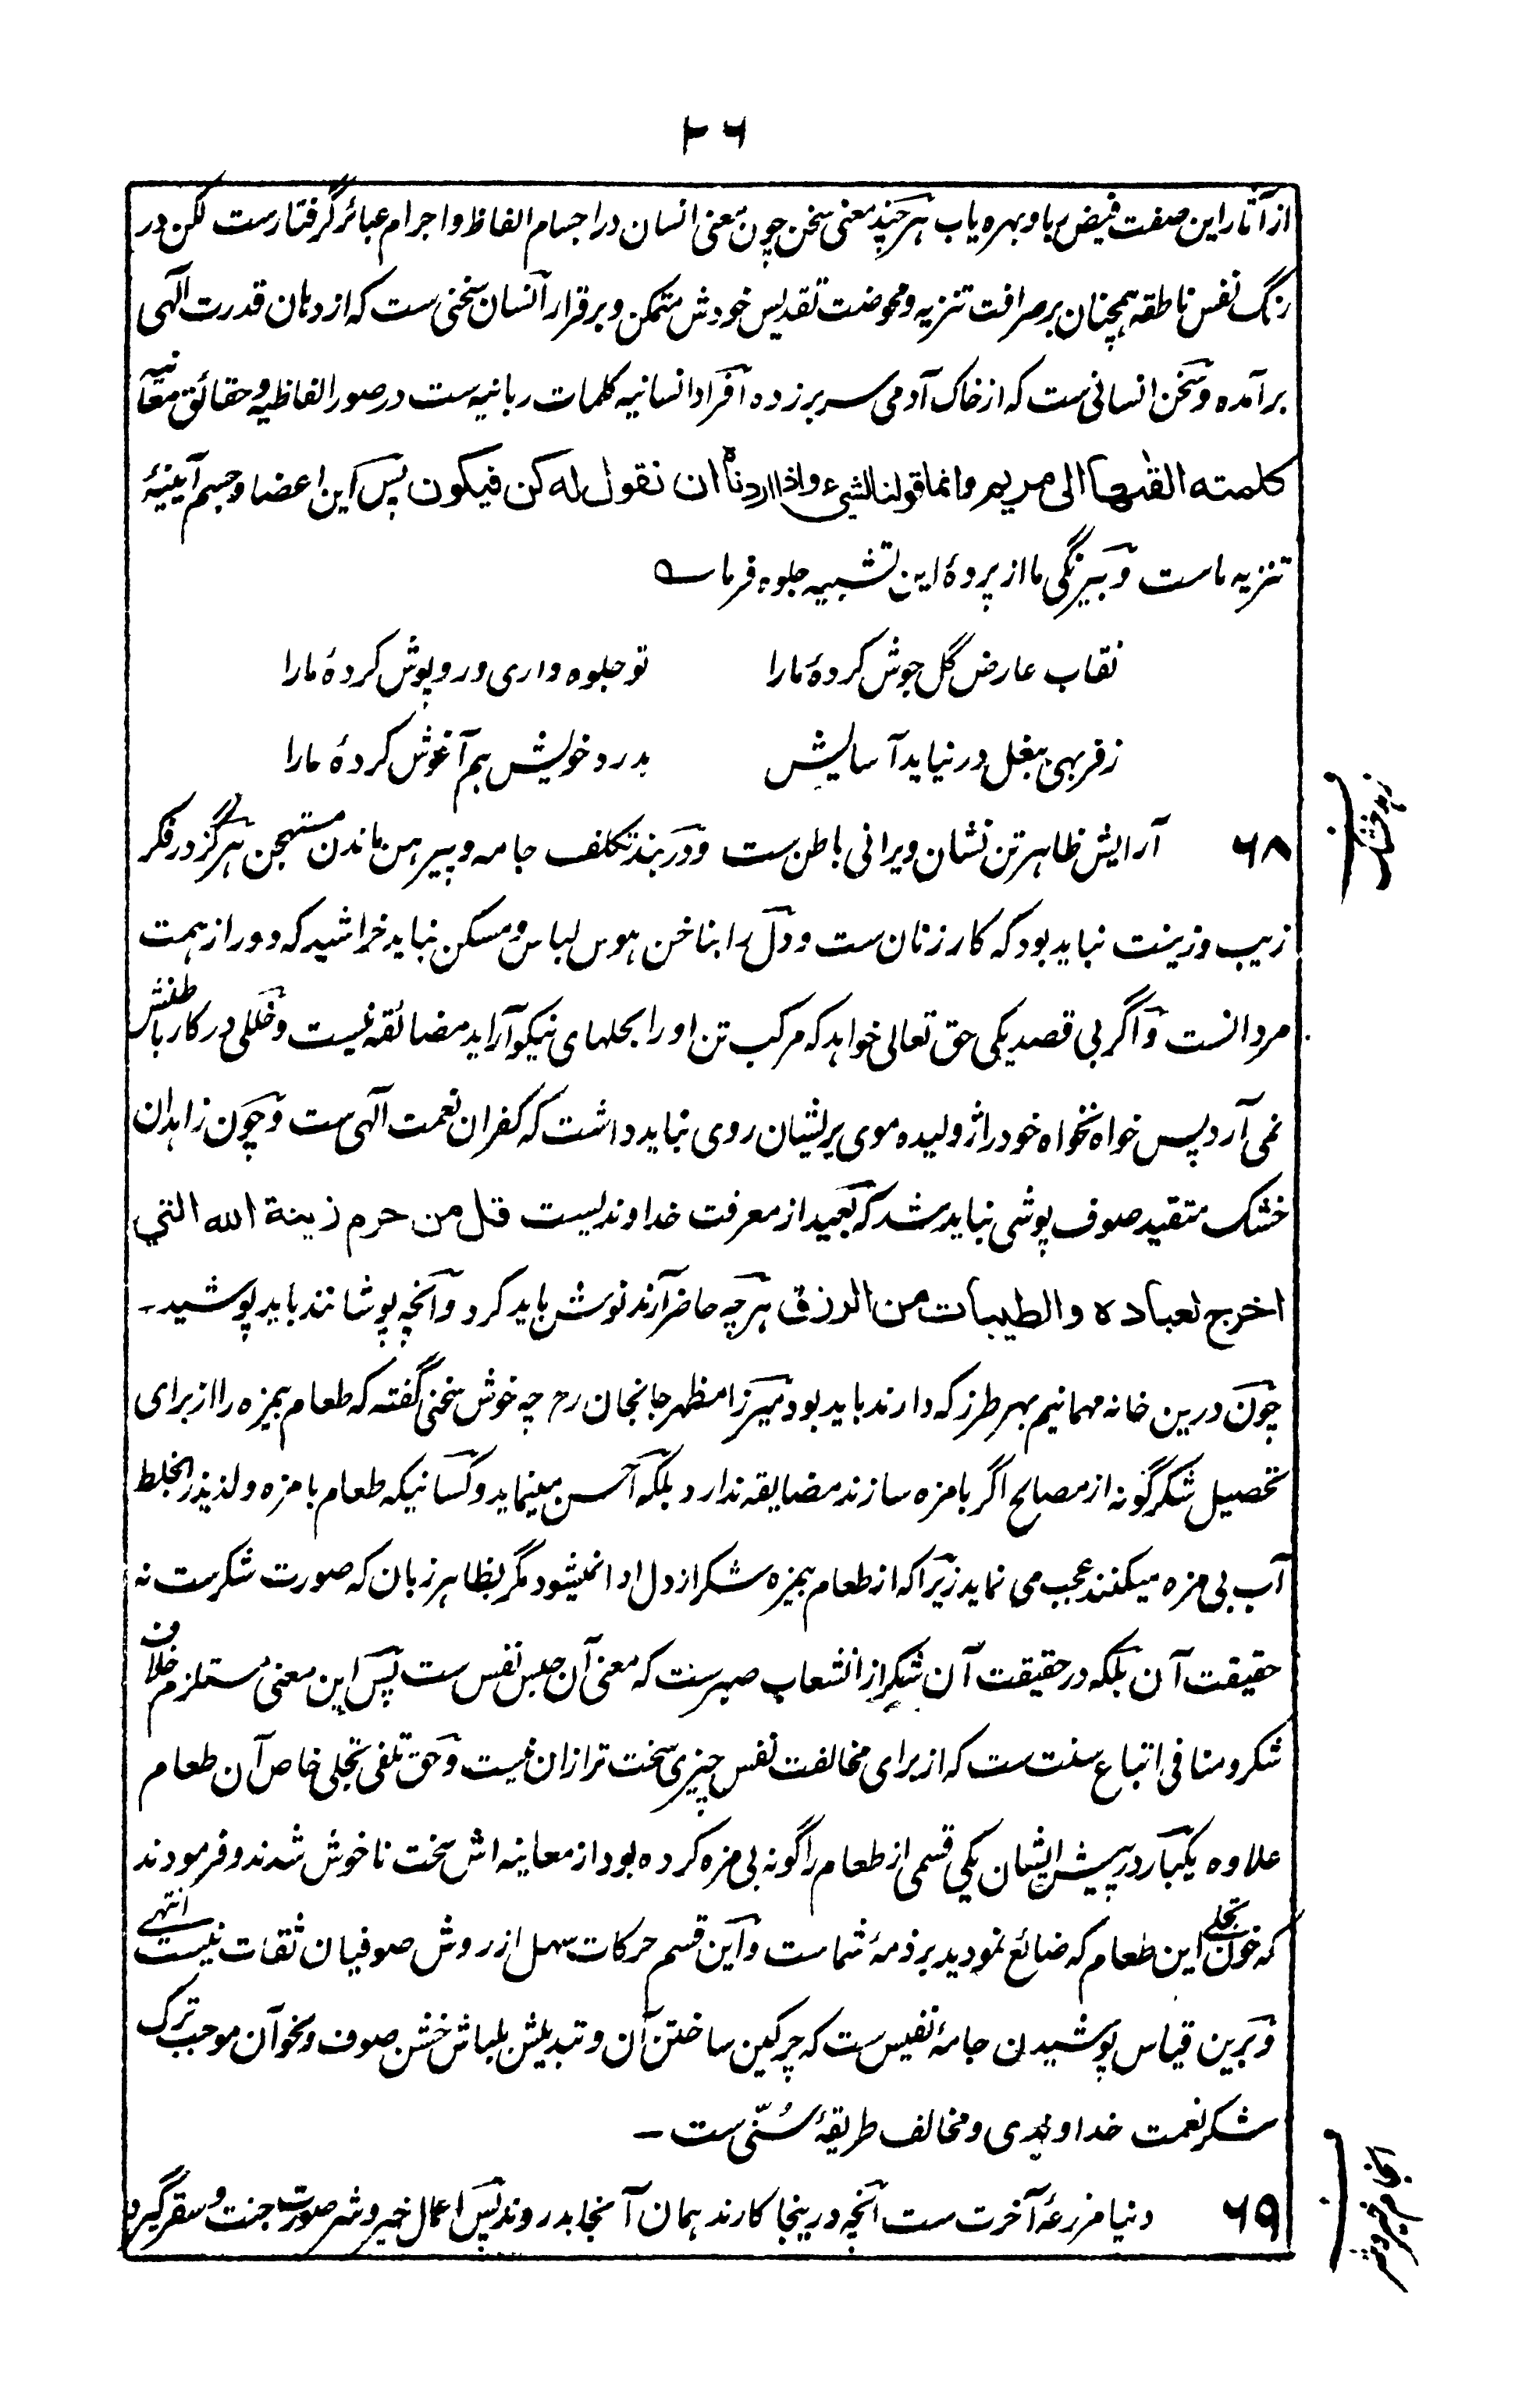 ۲۶
از آثار این صفت فیض ربا و بهره یاب هرچند معنی سخن چون معنی انسان در اجسام الفاظ و اجرام عبائر گرفتارست لکن در
رنگ نفس ناطقه همچنان بر صرافت تنزیه و محوضت تقدیس خودش متمکن و برقرار انسان سخنی ست که از دهان قدرت الٓهی
برآمده و سخن انسانی ست که از خاک آدمی سر بر زده افراد انسانیه کلمات ربانیه ست در صور الفاظیه و حقائق معانیه
کلمته القٰىها الی مریم و انما قولنا لشیء اذا اردناه ان نقول له کن فیکون پس این اعضا و جسم آیینهٔ
تنزیه ماست و بیرنگی ما از پردهٔ این تشبیه جلوه فرما ؎
نقاب عارض گل جوش کردهٔ ما را تو جلوه داری و روپوش کردهٔ ما را
ز فربهی ببغل در نیاید آسایش بدرد خویش هم آغوش کردهٔ ما را
زهد خشک
۶۸ آرایش ظاهر تن نشان ویرانی باطن ست و در بند تکلف جامه و پیرهن ماندن مستهجن هرگز در فکر
زیب و زینت نباید بود که کار زنان ست و دل را بناخن هوس لباس و مسکن نباید خراشید که دور از همت
مردانست و اگر بی قصد یکی حق تعالی خواهد که مرکب تن او را بجلهای نیکو آراید مضائقه نیست و خللی در کار باطنش
نمی آرد پس خواه نخواه خود را ژولیده موی پریشان روی نباید داشت که کفران نعمت الٓهی ست و چون زاهدان
خشک متقید صوف پوشی نباید شد که بعید از معرفت خداوندیست قل من حرم زینة الله التی
اخرج لعباده والطیبات من الرزق هرچه حاضر آرند نوش باید کرد و آنچه پوشانند باید پوشید ۔
چون درین خانه مهمانیم بهر طرز که دارند باید بود میرزا مظهر جانجان رح چه خوش سخنی گفته که طعام بیمزه را از برای
تحصیل شکر گونه از مصالح اگر بامزه سازند مضایقه ندارد بلکه احسن مینماید و کسانیکه طعام بامزه و لذیذ را بخلط
آب بی مزه میکنند عجب می نماید زیرا که از طعام بیمزه شکر از دل ادا نمیشود مگر بظاهر زبان که صورت شکرست نه
حقیقت آن بلکه در حقیقت آن شکر از انشعاب صبرست که معنی آن حبس نفس ست پس این معنی مستلزم خلاف
شکر و منافی اتباع سنت ست که از برای مخالفت نفس چیزی سخت تر ازان نیست و حق تلفی تجلی خاص آن طعام
علاوه یکبار در پیش ایشان یکی قسمی از طعام را گونه بی مزه کرده بود از معاینه اش سخت ناخوش شدند و فرمودند
که خون تجلی این طعام که ضائع نمودید بر ذمهٔ شماست و این قسم حرکات سهل از روش صوفیان ثقات نیست انتهی
و برین قیاس پوشیدن جامهٔ نفیس ست که چرکین ساختن آن و تبدیلش بلباش خشن صوف و نحو آن موجب ترک
شکر نعمت خداوندی و مخالف طریقهٔ سُنّی ست ۔
انجام خیر و شر
۶۹ دنیا مزرعهٔ آخرت ست آنچه درینجا کارند همان آنجا بدروند پس اعمال خیر و شر صورت جنت و سقر گیرد